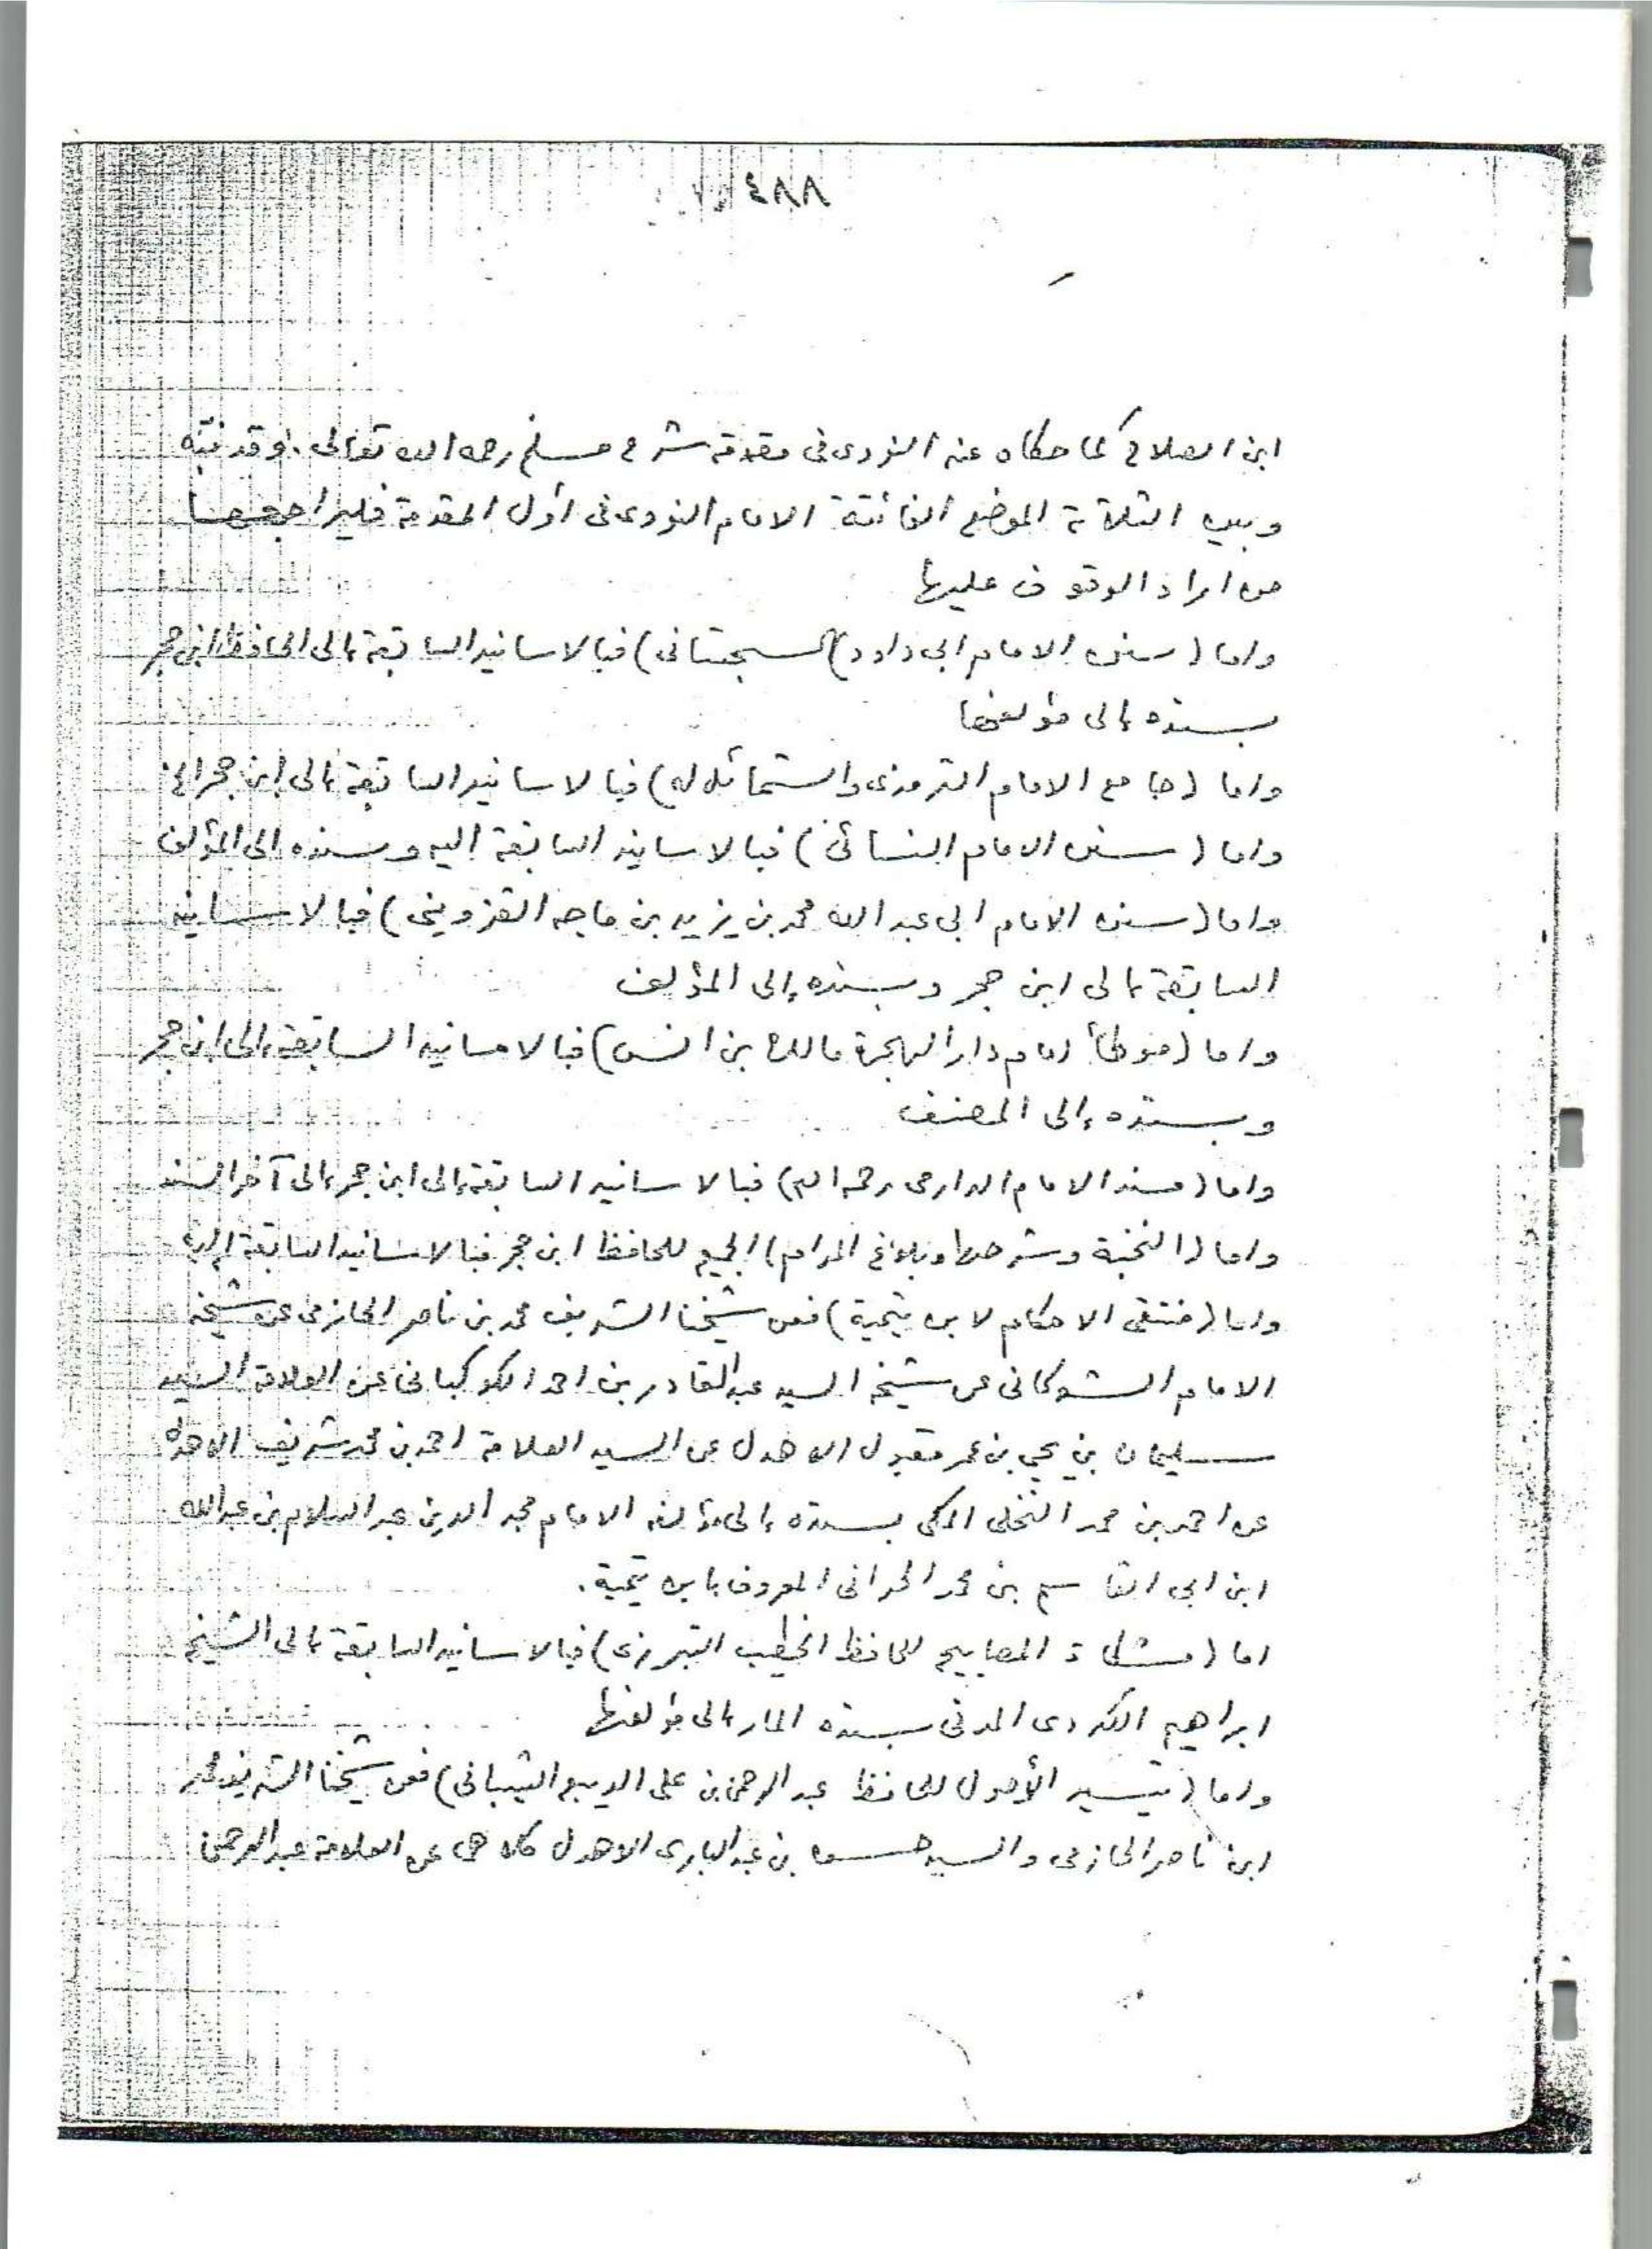 ٤٨٨
ابن الصلاح كما حكاه عنه النووى فى مقدمة شرح مسلم رحمه الله تعالى . وقد نبّه
وبين الثلاثة المواضع الفائتة الامام النووى فى أول المقدمة فليراجعها
من اراد الوقوف عليها
واما (سنن الامام ابى داود السجستانى) فبالاسانيد السابقة إلى الحافظ ابن حجر
بسنده إلى مؤلفها
واما (جامع الامام الترمذى والشمائل له) فبالاسانيد السابقة إلى ابن حجر الخ
واما (سنن الامام النسائى) فبالاسانيد السابقة اليه وسنده الى المؤلف
واما (سنن الامام ابى عبد الله محمد بن يزيد بن ماجه القزوينى) فبالاسانيد
السابقة إلى ابن حجر وبسنده إلى المؤلف
واما (موطأ امام دار الهجرة مالك بن انس) فبالاسانيد السابقة إلى ابن حجر
وبسنده إلى المصنف
واما (مسند الامام الدارمى رحمه الله) فبالاسانيد السابقة إلى ابن حجر إلى آخر السند
واما (النخبة وشرحها وبلوغ المرام) الجميع للحافظ ابن حجر فبالاسانيد السابقة إليه
واما (منتقى الاحكام لابن تيمية) فعن شيخنا الشريف محمد بن ناصر الحازمى عن شيخه
الامام الشوكانى عن شيخه السيد عبد القادر بن احمد الكوكبانى عن العلامة السيد
سليمان بن يحيى بن عمر مقبول الاهدل عن السيد العلامة احمد بن محمد شريف الاهدل
عن احمد بن محمد النخلى المكى بسنده إلى مؤلفه الامام مجد الدين عبد السلام بن عبد الله
ابن ابى القاسم بن محمد الحرانى المعروف بابن تيمية .
اما (مشكاة المصابيح للحافظ الخطيب التبريزى) فبالاسانيد السابقة إلى الشيخ
ابراهيم الكردى المدنى بسنده المار إلى مؤلفها
واما (تيسير الأصول للحافظ عبد الرحمن بن على الديبع الشيبانى) فعن شيخنا الشريف محمد
ابن ناصر الحازمى والسيد حسن بن عبد البارى الاهدل كلاهما عن العلامة عبد الرحمن